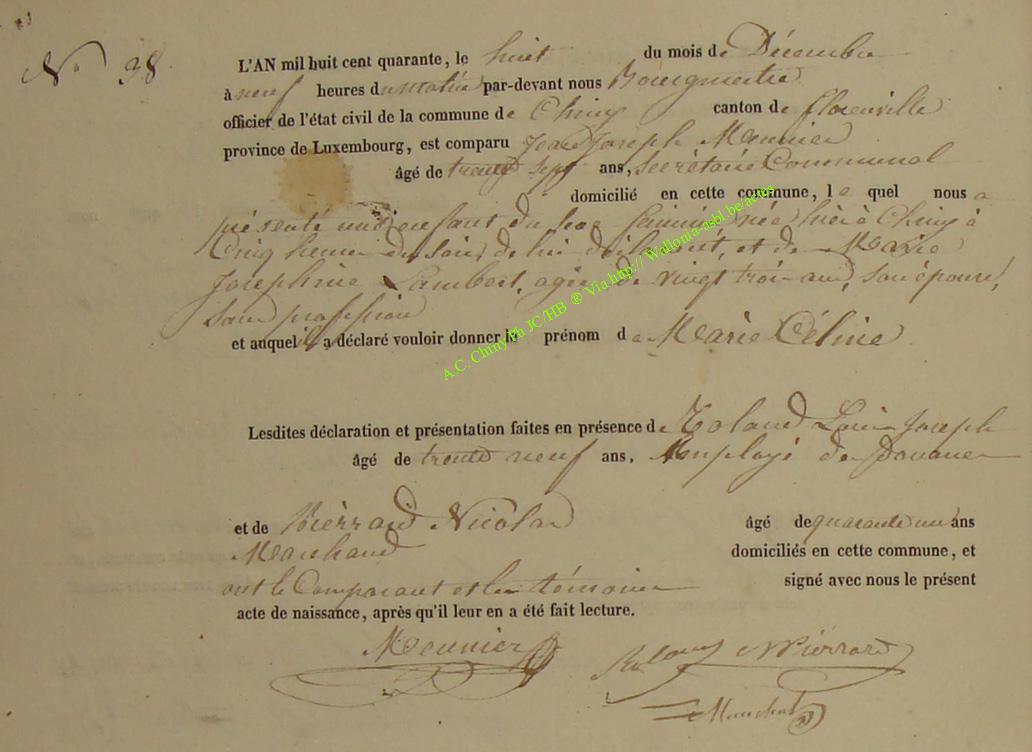 N° 38
L'AN mil huit cent quarante, le huit du mois de Décembre
à neuf heures du matin par-devant nous Bourgmestre
officier de l'état civil de la commune de Chiny canton de florenville
province de Luxembourg, est comparu Jean Joseph Meunier
âgé de trente sept ans, Secrètaire Communal
domicilié en cette commune, le quel nous a
présenté un enfant du sexe féminin née hier à Chiny à
Cinq heures du soir, de lui déclarant, et de Marie
Josephine Lambert, agée de vingt trois ans, son épouse,
sans profession
et auquel il a déclaré vouloir donner le prénom de Marie Céline
Lesdites déclaration et présentation faites en présence de Roland Louis Joseph
âgé de trente neuf ans, Employé des Douanes
et de Pièrrard Nicolas âgé de quarante un ans
Marchand domiciliés en cette commune, et
ont le Comparant et les témoins signé avec nous le présent
acte de naissance, après qu'il leur en a été fait lecture.
Meunier Roland NPièrrard
A.C. Chiny Ph JC/HB ® Via http://Wallonia-asbl.be/actes